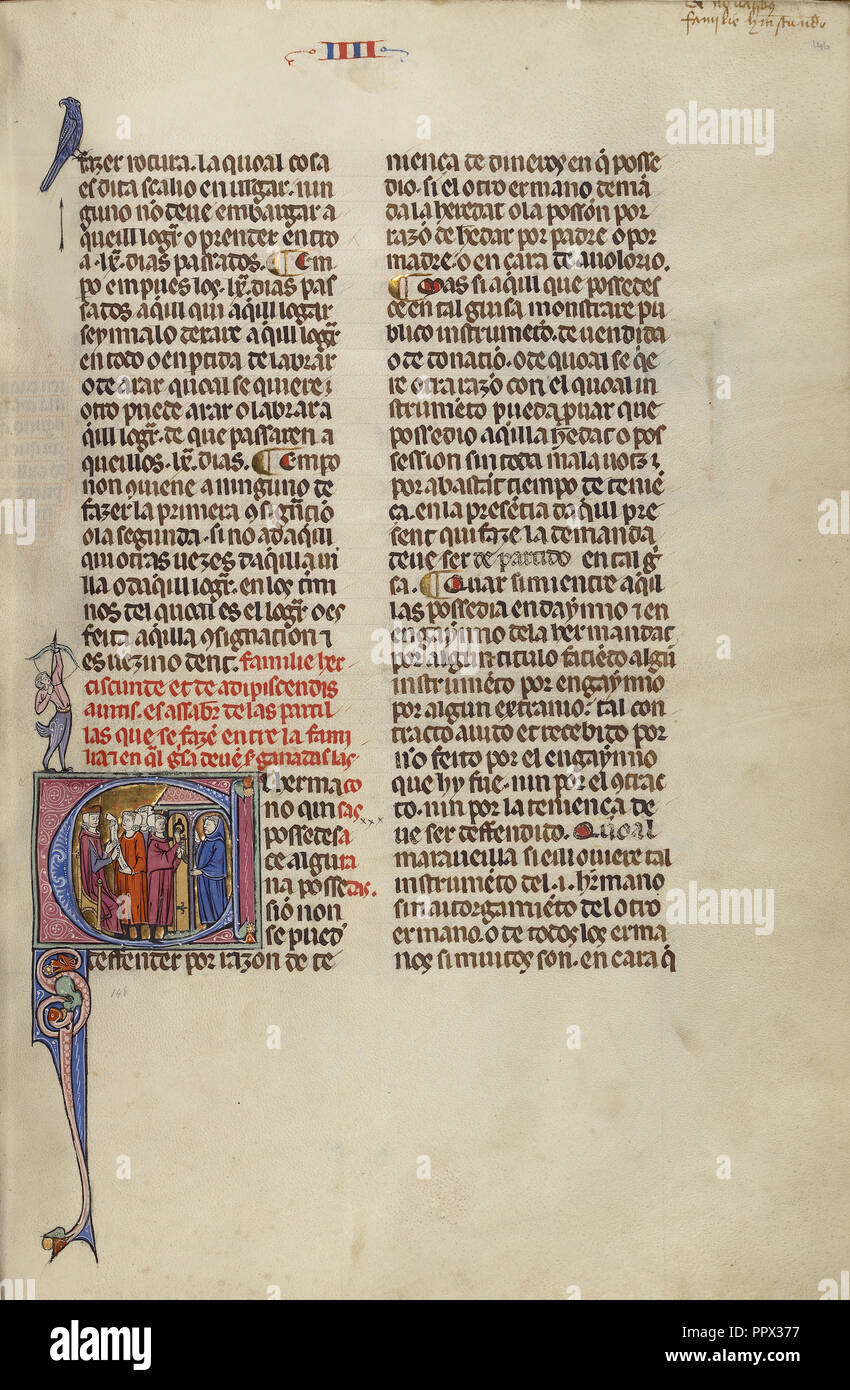 familie hrciscunde
146
IIII
fazer rotura. la quoal cosa
es dita scalio en uulgar. nin
guno nō deue embargar a
queill logr̄ o prender entro
a .lx̄. dias passados. ¶ Em
po empues los .lx̄. dias pas
sados aqiȷll qui aqiȷll logar
seynnalo dexare aqiȷll logr̄
en todo o en ptida de labrar
o de arar quoal se quiere ⁊
otro puede arar o labrar a
qiȷll logr̄. de que passaren a
queillos .lx̄. dias. ¶ Empo
non ꝯuiene a ninguno de
fazer la primera ꝯsignc̄io
o la segunda. si nō ad aqiȷll
qui otras uezes daqiȷlla ui
lla o daqiȷll logr̄. en los tim
nos del quoal es el logr̄ o es
feita aqiȷlla ꝯsignacion ⁊
es uezino dent. familie her
ciscunde et de adipiscendis
auris. es assabr̄ de las partil
las que se fazē entre la fami
lia ⁊ en q̄l gīsa deuē sr̄ ganadas las
l hermaco
no qui sas
possedesa
ce algura
na possedas.
siō non
se pued̄
deffender por razon de te
nienca de dineros en q̄ posse
dio. si el otro ermano demā
da la heredat o la possōn por
razō de hēdat por padre o por
madre. o en cara de auolorio.
¶ Mas si aqiȷll que possedes
ce en tal guisa monstrare pu
blico instrumēto. de uendida
o de donatiō. o de quoal se qē
re otra razō con el quoal in
strumēto pueda ꝓuar que
possedio aqiȷlla hēdat o pos
session sin toda mala uotz ⁊
por abastāt tiempo de teniē
ca. en la presētia daqiȷll pre
sent qui faze la demanda
deue ser de partido en tal gī
sa. ¶ Quar si mientre aqiȷl
las possedia en daȳnnio ⁊ en
engaȳnno de la hermandat
por algun titulo faciēdo algū
instrumēto por engaȳnnio
por algun extranio. tal con
tracto auido et recebido por
nō feito por el engaȳnnio
que hy fue. nin por el ꝯtrac
to. nin por la tenienca de
ue ser deffendido. Quoal
maraueilla si eill ouiere tal
instrumēto del .i. hr̄mano
sin autorgamiēto del otro
ermano. o de todos los erma
nos si muitos son. en cara q̄
148
alamy
Image ID: PPX377
www.alamy.com